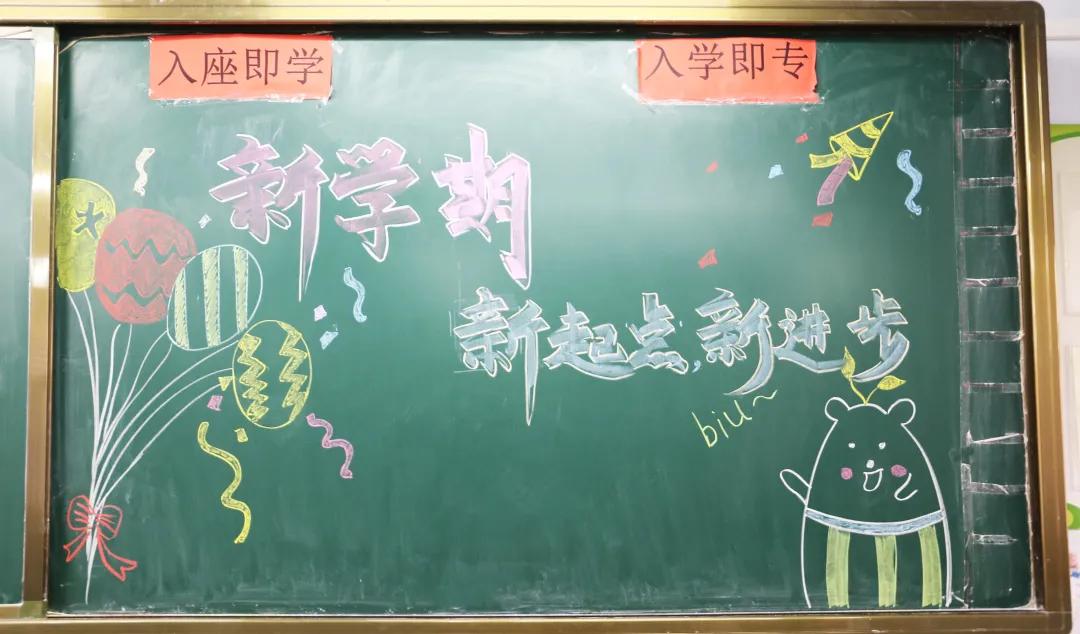 入座即学
入学即专
新学期
新起点,新进步
biu~